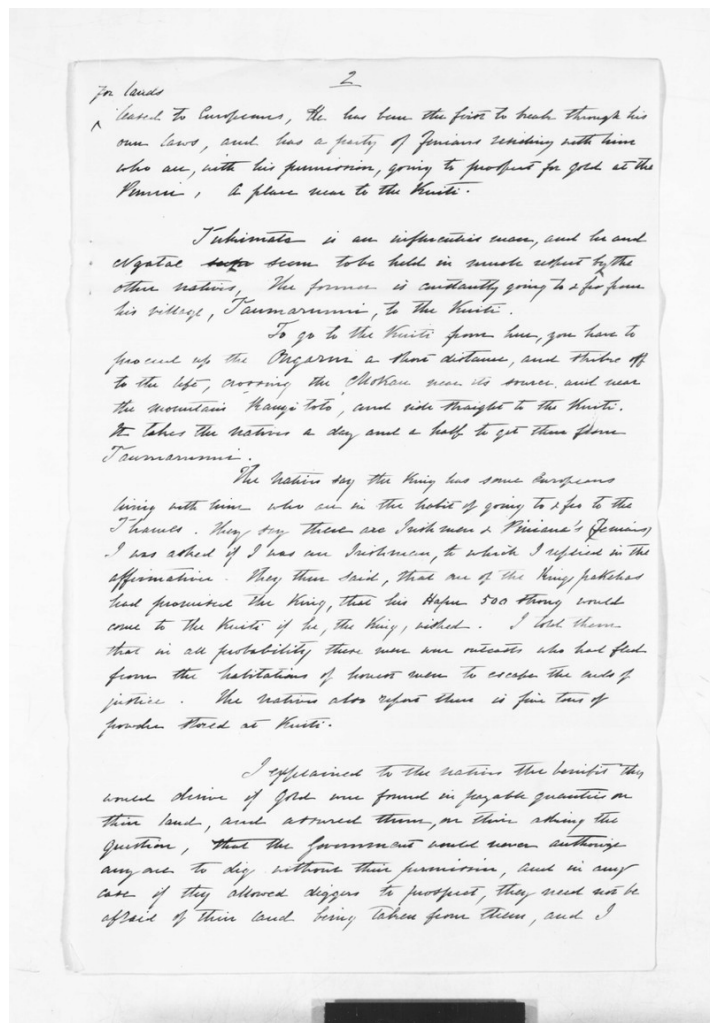 2
for lands
leased to Europeans, He has been the first to break through his
own laws, and has a party of Fenians residing with him
who are, with his permission, going to prospect for gold at the
A place near to the Kuiti.
Tukimata is an influential man, and he and
Ngatae seem to be held in much respect by the
other natives, The former is constantly going to & fro from
his village, Taumarunui, to the Kuiti.
To go to the Kuiti from here, you have to
proceed up the Ongarui a short distance, and strike off
to the left, crossing the Mokau near its source, and near
the mountain 'Rangitoto', and ride straight to the Kuiti.
It takes the natives a day and a half to get there from
Taumarunui.
The natives say the King has some Europeans
living with him who are in the habit of going to & fro to the
Thames. They say these are Irishmen & Piniana's (Fenians)
I was asked if I was an Irishman, to which I replied in the
affirmative. They then said, that one of the Kings pakehas
had promised the King, that his Hapu 500 strong would
come to the Kuiti if he, the King, wished. I told them
that in all probability these men were outcasts who had fled
from the habitations of honest men to escape the ends of
justice. The natives also report there is five tons of
powder stored at Kuiti.
I explained to the natives the benefits they
would derive if gold were found in payable quantities on
their land, and assured them, on their asking the
question, that the Government would never authorize
any one to dig without their permission, and in any
case if they allowed diggers to prospect, they need not be
afraid of their land being taken from them, and I